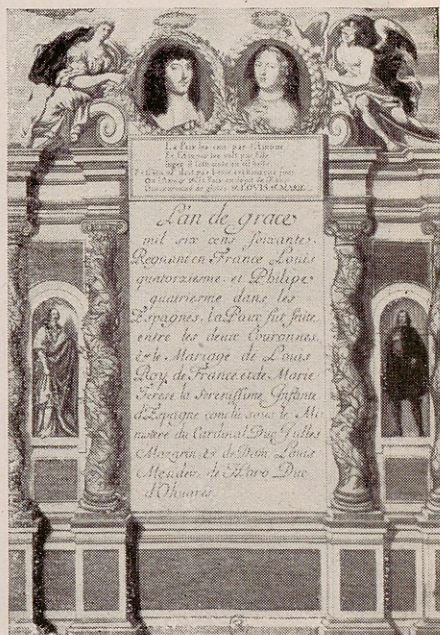 La Paix les unit par
L'an de grace
mil six cens soixante.
Regnant en France Louis
quatorziesme. et Philipe
quatriesme dans les
Espagnes. la Paix fut faite
entre les deux Couronnes.
& le Mariage de Louis
Roy de France et de Marie
Terese la Serenissime Infante
d'Espagne conclu sous le Mi
nistere du Cardinal Duc Julles
Mazarin, & de Dom Louis
Mendez, de Haro Duc
d'Olivarés